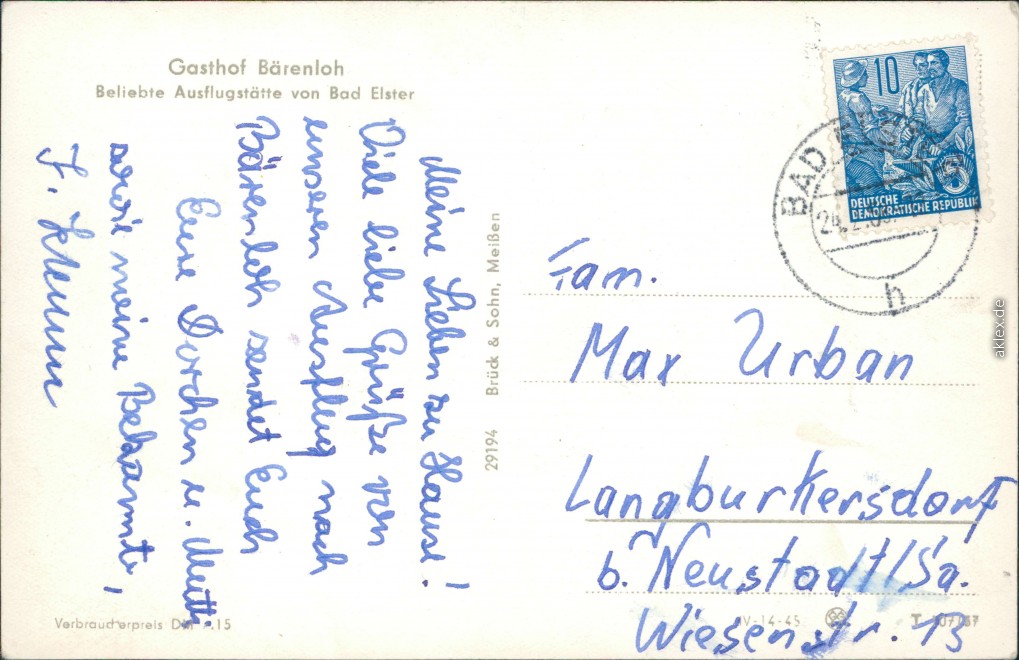 Gasthof Bärenloh
Beliebte Ausflugstätte von Bad Elster
Meine Lieben zu Hause!
Viele liebe Grüße von
unseren Ausflug nach
Bärenloh sendet Euch
Eure Dorchen u. Mutti
sowie meine Bekannte,
Verbraucherpreis DM -.15
29194 Brück & Sohn, Meißen
10
5
DEUTSCHE
DEMOKRATISCHE REPUBLIK
BAD
h
Fam.
Max Urban
Langburkersdorf
b. Neustadt/Sa.
Wiesenstr. 13
IV-14-45
aklex.de